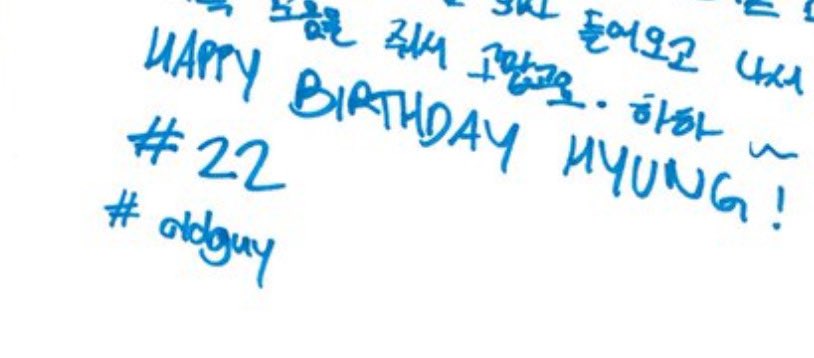 도움을 줘서 고맙고요. 하하 ~
들어오고 나서
HAPPY BIRTHDAY HYUNG!
#22
# oldguy